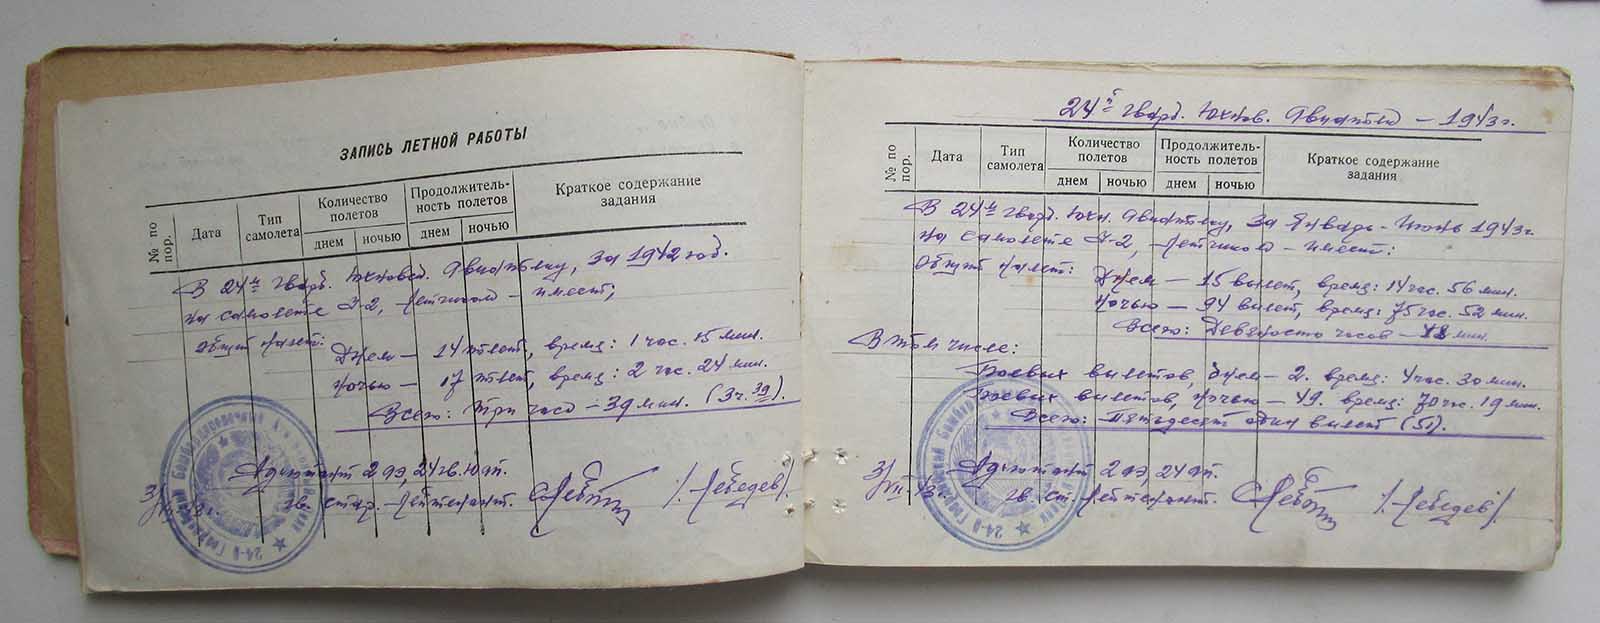 ЗАПИСЬ ЛЕТНОЙ РАБОТЫ
№ по пор.
Дата
Тип самолета
Количество полетов
днем
ночью
Продолжитель-
ность полетов
днем
ночью
Краткое содержание
задания
В 24м гвард. Авиаполку, за 1942 год.
на самолете У-2, летчиком – имеет;
Общий налет:
Днем – 14 полет, время: 1 час. 15 мин.
Ночью – 17 полет, время: 2 час. 24 мин.
Всего: Три часа – 39 мин. (3ч. 39).
Адъютант 2 аэ, 24 гв.
гв. стар. Лейтенант. /Лебедев/.
24й гвард. Авиаполк – 1943г.
№ по пор.
Дата
Тип самолета
Количество полетов
днем
ночью
Продолжитель-
ность полетов
днем
ночью
Краткое содержание
задания
В 24м гвард. Авиаполку, за Январь - Июнь 1943г
на самолете У-2, летчиком – имеет:
Общий налет:
Днем – 15 вылет, время: 14 час. 56 мин.
Ночью – 94 вылет, время: 75 час. 52 мин.
Всего: Девяносто часов – мин.
В том числе:
Боевых вылетов, днем – 2. время: 4 час. 30 мин.
Боевых вылетов, ночью – 49. время: 70 час. 19 мин.
Всего: Пятьдесят один вылет (51).
Адъютант 2 аэ, 24 ап.
гв. ст. Лейтенант. /Лебедев/.